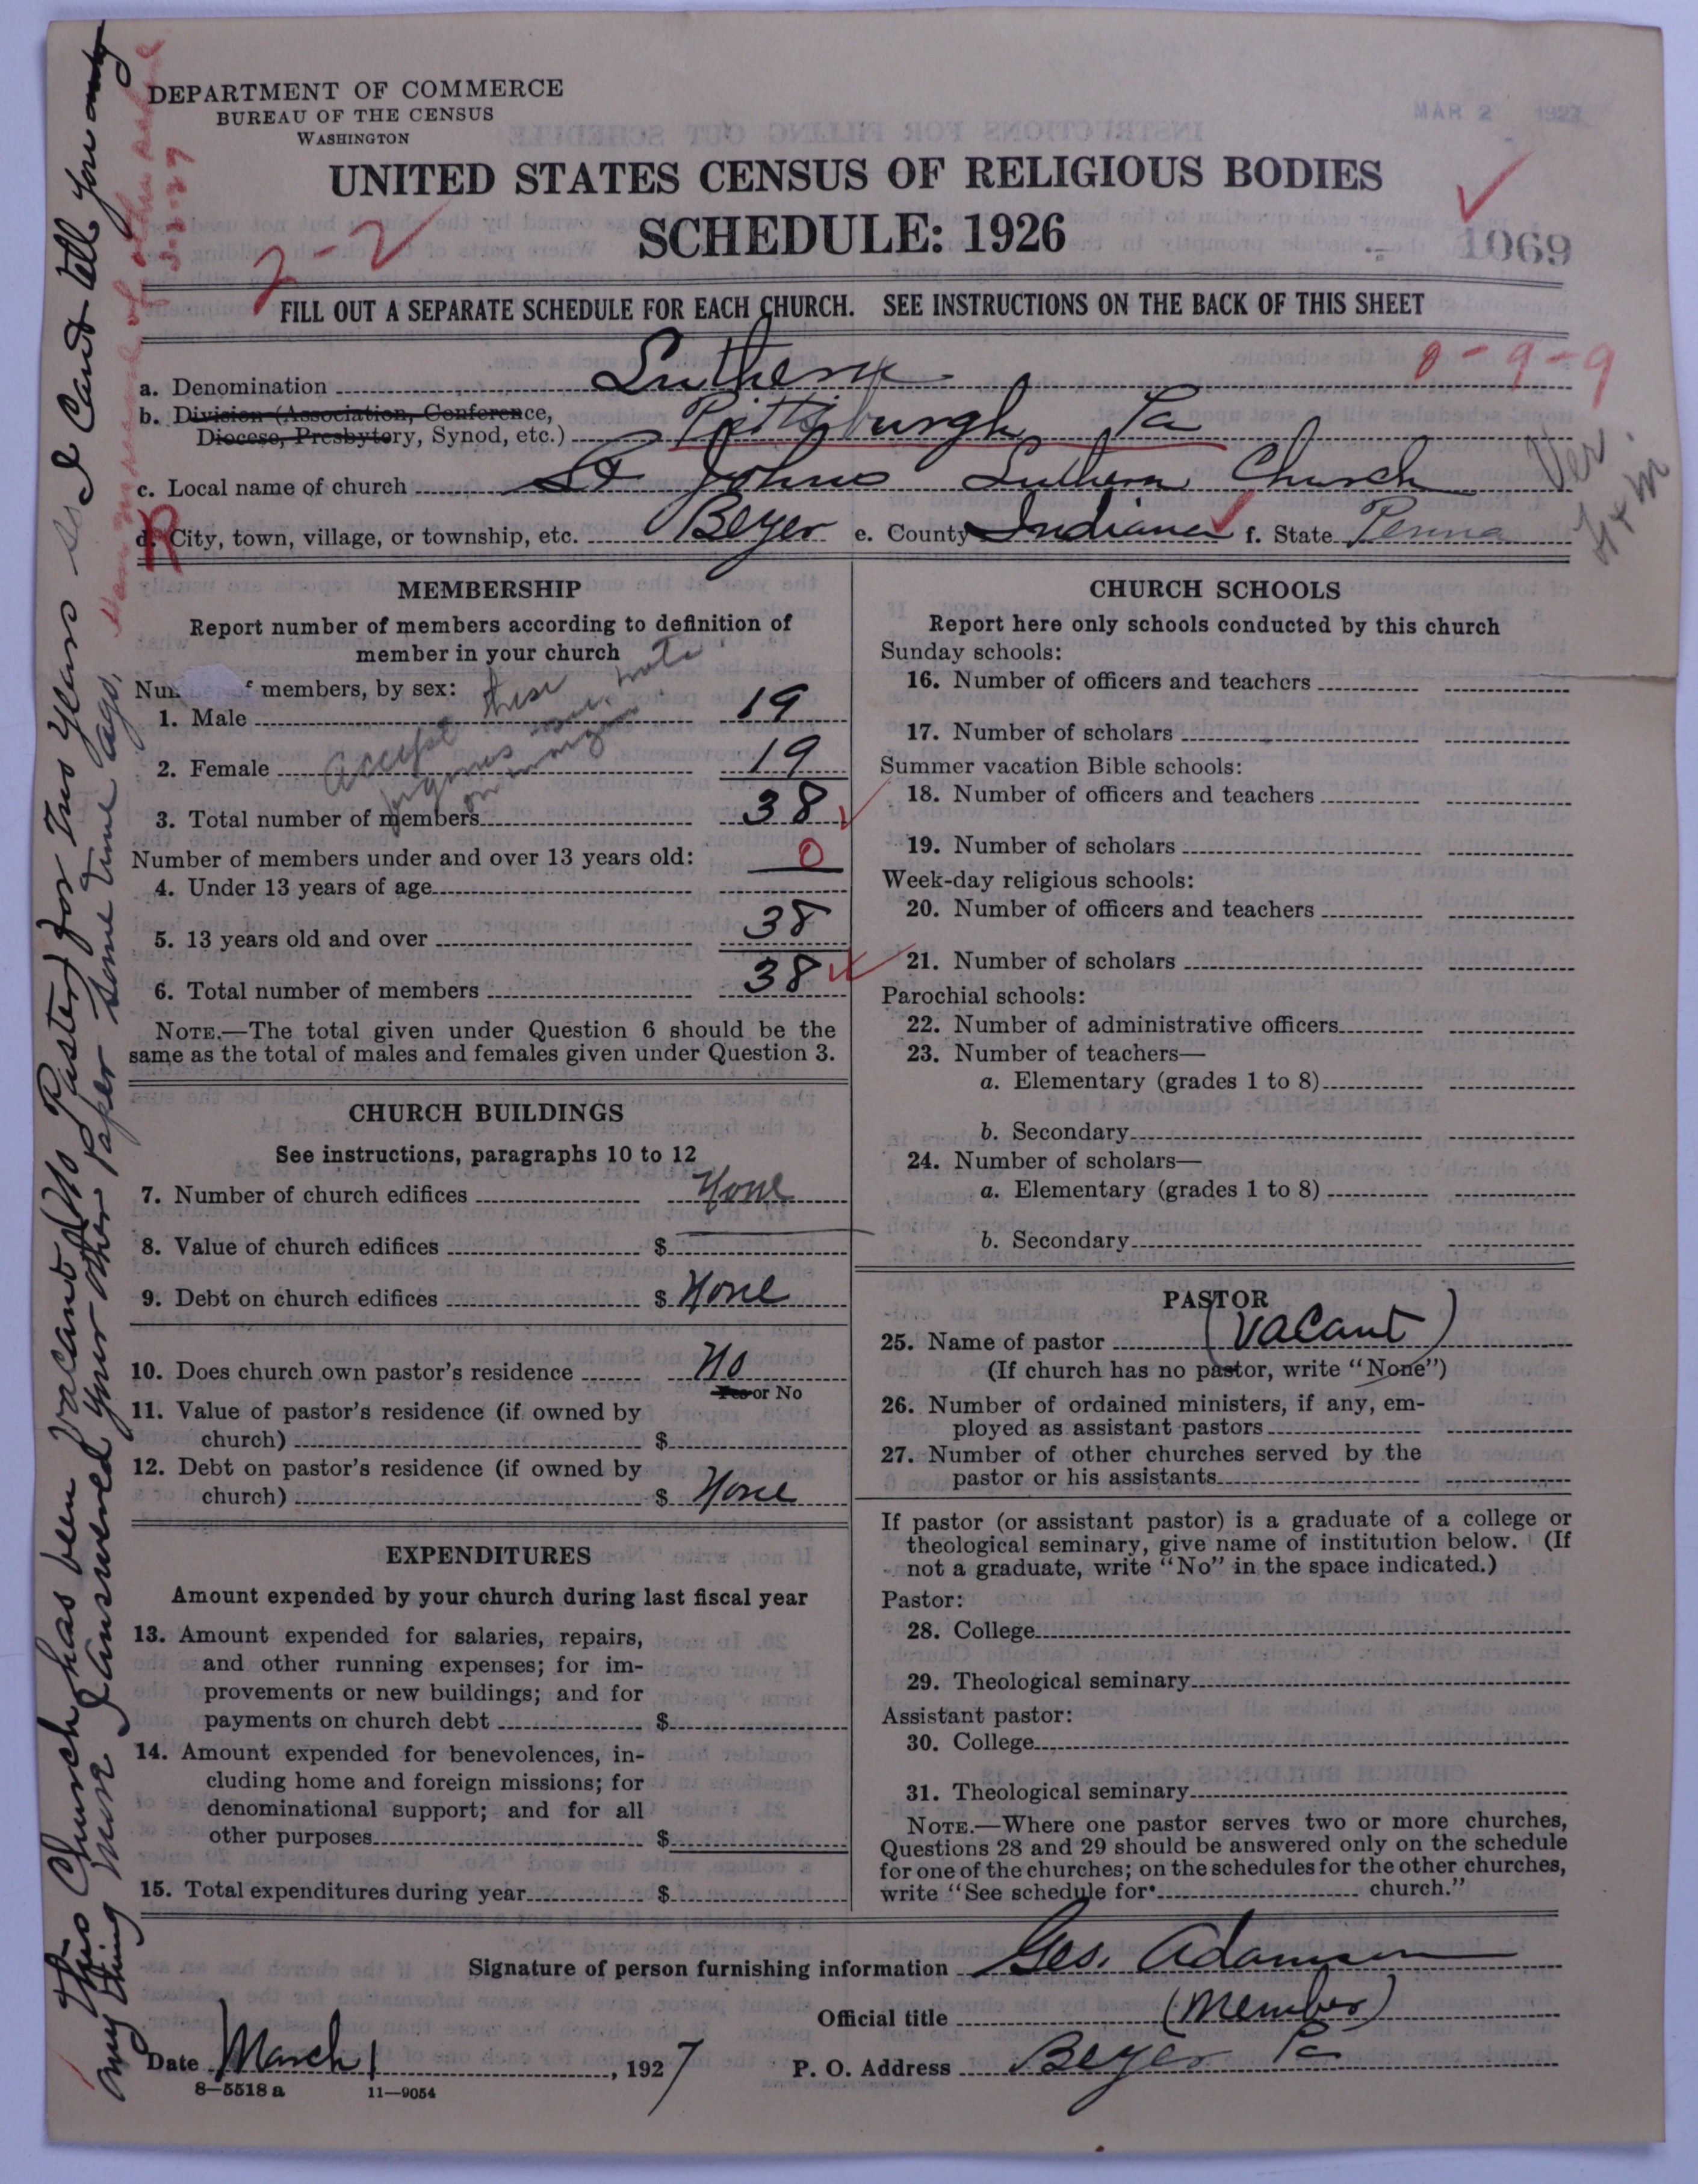 DEPARTMENT OF COMMERCE
BUREAU OF THE CENSUS
WASHINGTON
MAR 2 1927
UNITED STATES CENSUS OF RELIGIOUS BODIES
SCHEDULE: 1926
2-2
1069
FILL OUT A SEPARATE SCHEDULE FOR EACH CHURCH. SEE INSTRUCTIONS ON THE BACK OF THIS SHEET
0-9-9
a. Denomination Luthern
b. Division (Association, Conference,
Diocese, Presbytery, Synod, etc.) Pittsburgh Pa
c. Local name of church St Johns Luthern Church
Ver
R
d. City, town, village, or township, etc. Beyer e. County Indiana f. State Penna
MEMBERSHIP
Report number of members according to definition of
member in your church
Num of members, by sex:
1. Male 19
2. Female 19
Accept these
figures see note
on margin
3. Total number of members 38
Number of members under and over 13 years old:
4. Under 13 years of age 0
5. 13 years old and over 38
6. Total number of members 38
NOTE.—The total given under Question 6 should be the
same as the total of males and females given under Question 3.
CHURCH BUILDINGS
See instructions, paragraphs 10 to 12
7. Number of church edifices None
8. Value of church edifices $
9. Debt on church edifices $ None
10. Does church own pastor's residence No
Yes or No
11. Value of pastor's residence (if owned by
church) $
12. Debt on pastor's residence (if owned by
church) $ None
EXPENDITURES
Amount expended by your church during last fiscal year
13. Amount expended for salaries, repairs,
and other running expenses; for im-
provements or new buildings; and for
payments on church debt $
14. Amount expended for benevolences, in-
cluding home and foreign missions; for
denominational support; and for all
other purposes $
15. Total expenditures during year $
CHURCH SCHOOLS
Report here only schools conducted by this church
Sunday schools:
16. Number of officers and teachers
17. Number of scholars
Summer vacation Bible schools:
18. Number of officers and teachers
19. Number of scholars
Week-day religious schools:
20. Number of officers and teachers
21. Number of scholars
Parochial schools:
22. Number of administrative officers
23. Number of teachers—
a. Elementary (grades 1 to 8)
b. Secondary
24. Number of scholars—
a. Elementary (grades 1 to 8)
b. Secondary
PASTOR
25. Name of pastor (Vacant)
(If church has no pastor, write "None")
26. Number of ordained ministers, if any, em-
ployed as assistant pastors
27. Number of other churches served by the
pastor or his assistants
If pastor (or assistant pastor) is a graduate of a college or
theological seminary, give name of institution below. (If
not a graduate, write "No" in the space indicated.)
Pastor:
28. College
29. Theological seminary
Assistant pastor:
30. College
31. Theological seminary
NOTE.—Where one pastor serves two or more churches,
Questions 28 and 29 should be answered only on the schedule
for one of the churches; on the schedules for the other churches,
write "See schedule for church."
Signature of person furnishing information Geo. Adamson
Official title (Member)
Date March 1, 1927 P. O. Address Beyer Pa
8-5518 a 11-9054
This Church has been Vacant No Paster for Two years so I Cant tell you any
any thing more I answered your other Paper some time ago.
3-2-27